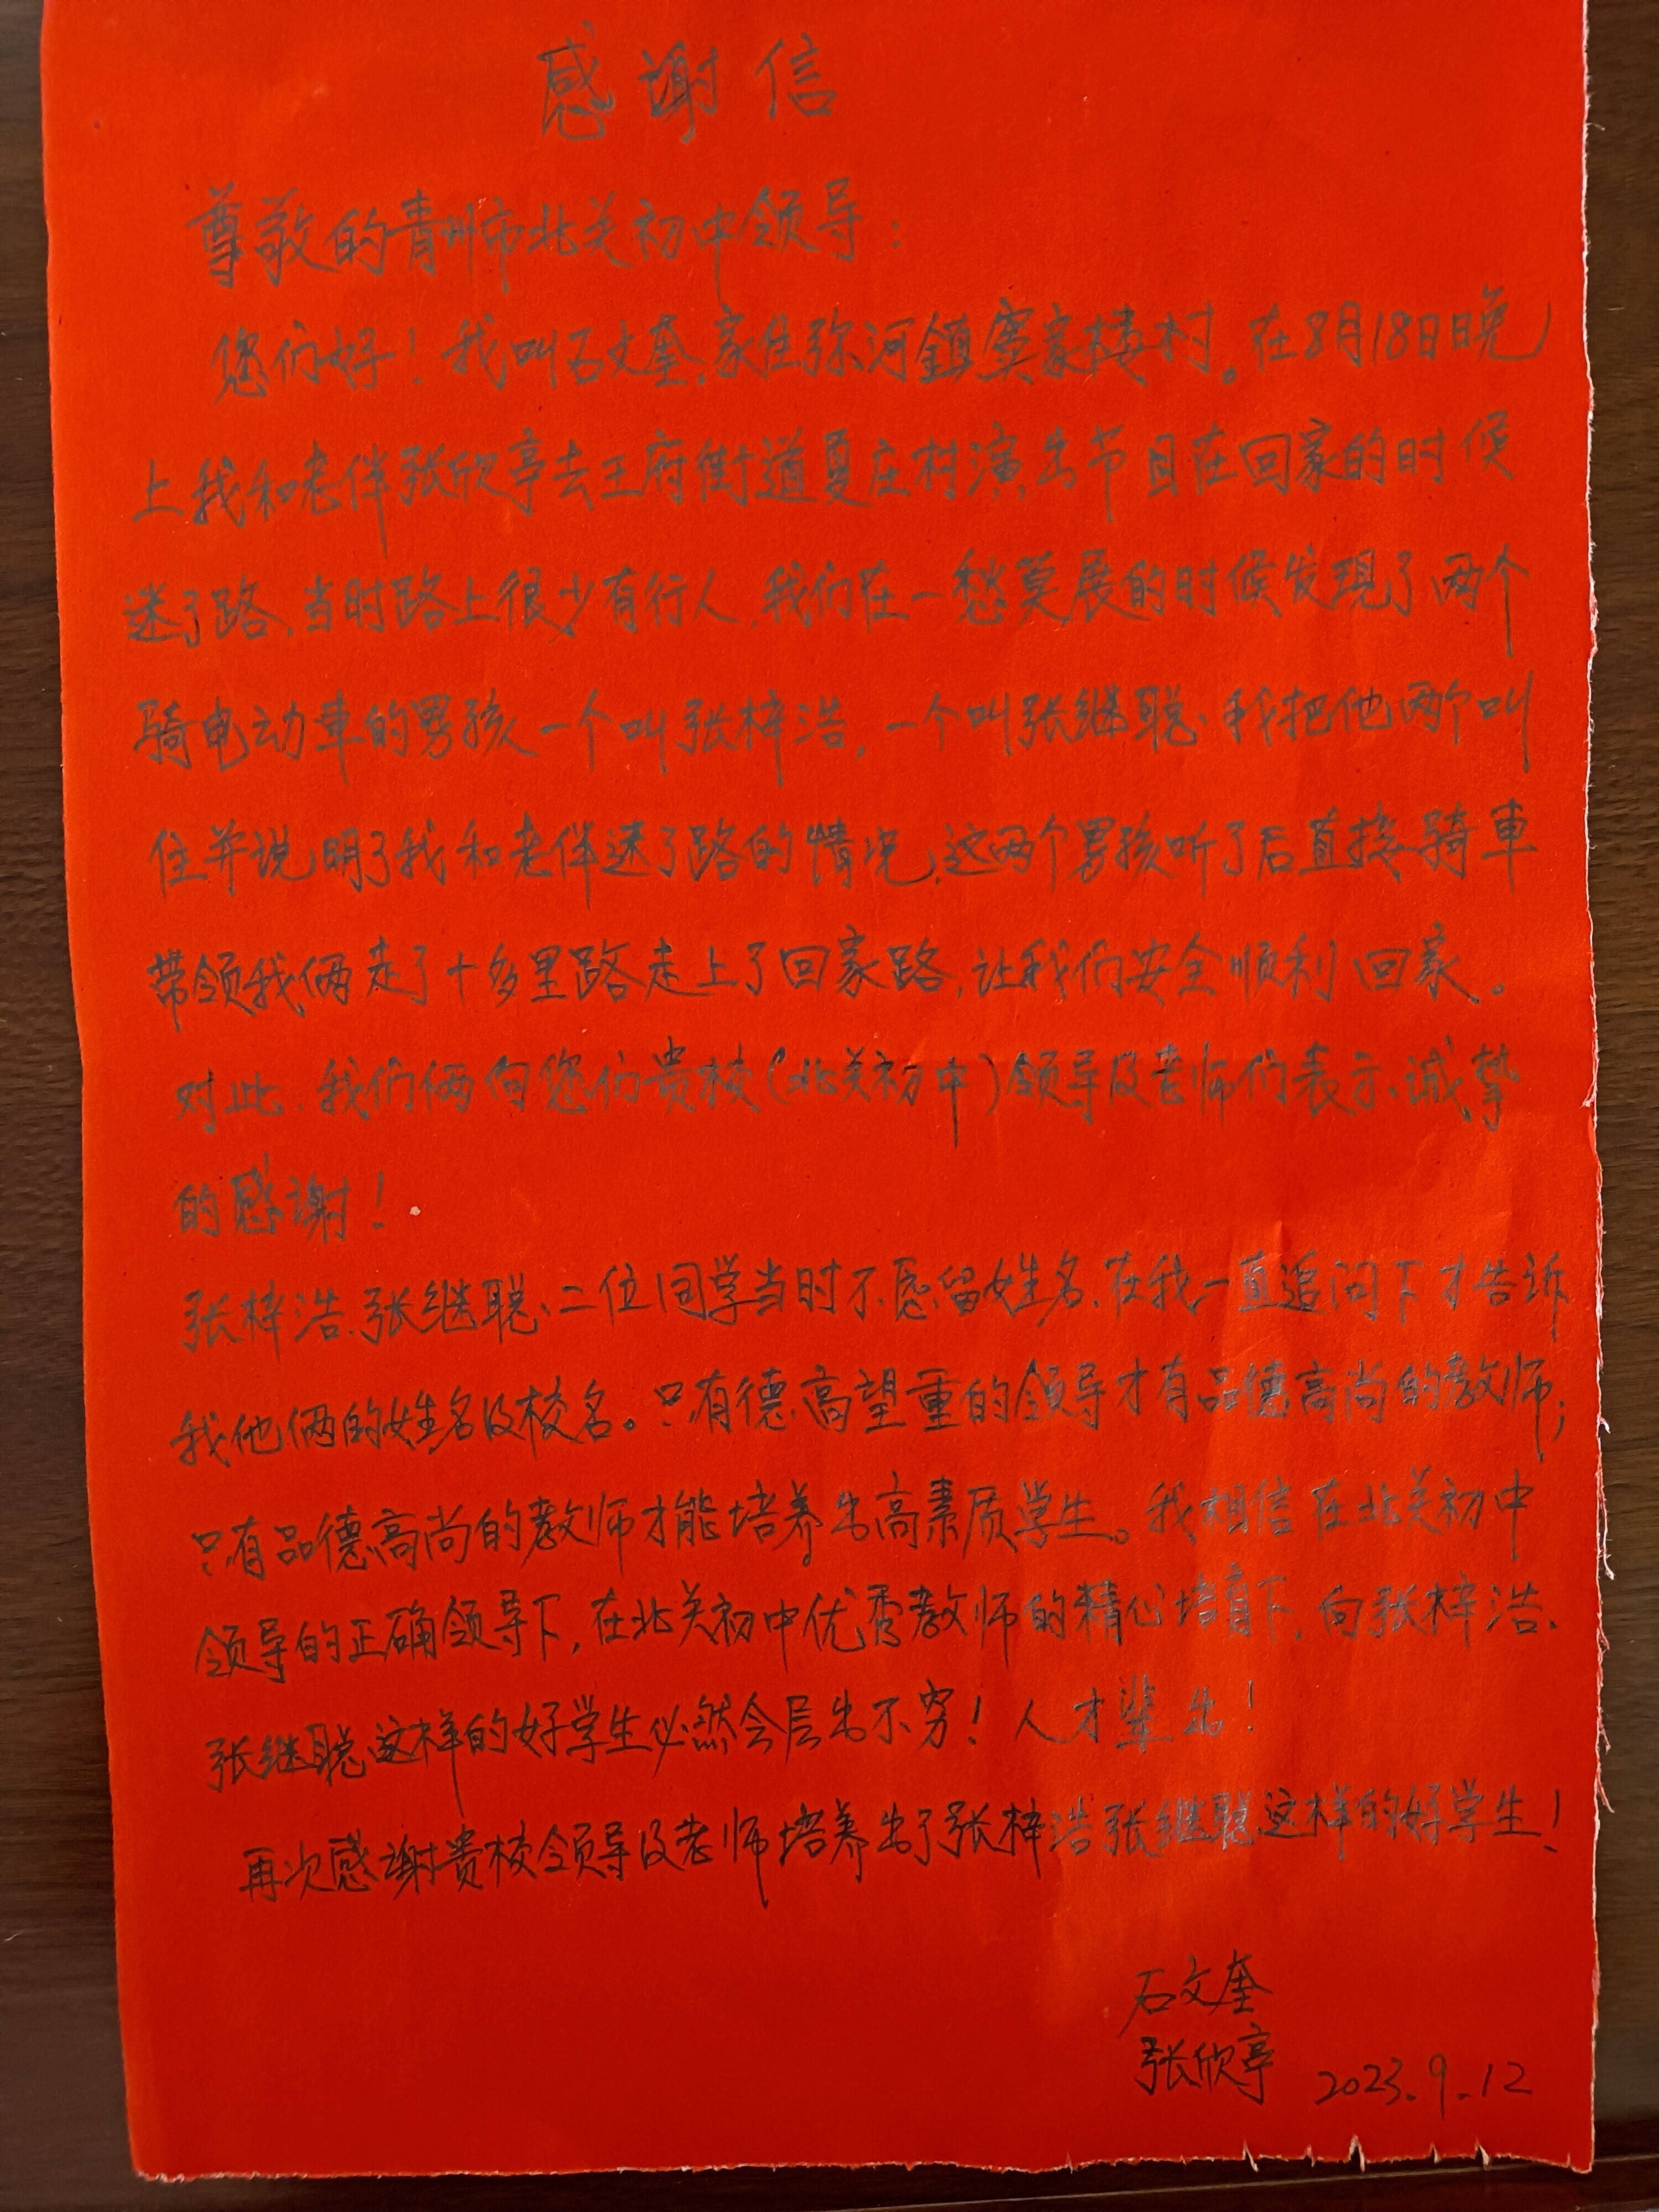 感谢信
尊敬的青州市北关初中领导：
您们好！我叫石文奎，家住弥河鎮窦家楼村。在8月18日晚
上我和老伴张欣亭去王府街道夏庄村演出节目在回家的时候
迷了路，当时路上很少有行人，我们在一愁莫展的时候发现了两个
骑电动車的男孩一个叫张梓浩，一个叫张继聪，我把他两个叫
住并说明了我和老伴迷了路的情况，这两个男孩听了后直接骑車
带领我俩走了十多里路走上了回家路，让我们安全顺利回家。
对此，我们俩向您们贵校（北关初中）领导及老师们表示诚挚
的感谢！
张梓浩、张继聪、二位同学当时不愿留姓名，在我一直追问下才告诉
我他俩的姓名及校名。只有德高望重的领导才有品德高尚的教师；
只有品德高尚的教师才能培养出高素质学生。我相信在北关初中
领导的正确领导下，在北关初中优秀教师的精心培育下，向张梓浩、
张继聪这样的好学生必然会层出不穷！人才辈出！
再次感谢贵校领导及老师培养出了张梓浩张继聪这样的好学生！
石文奎
张欣亭 2023.9.12